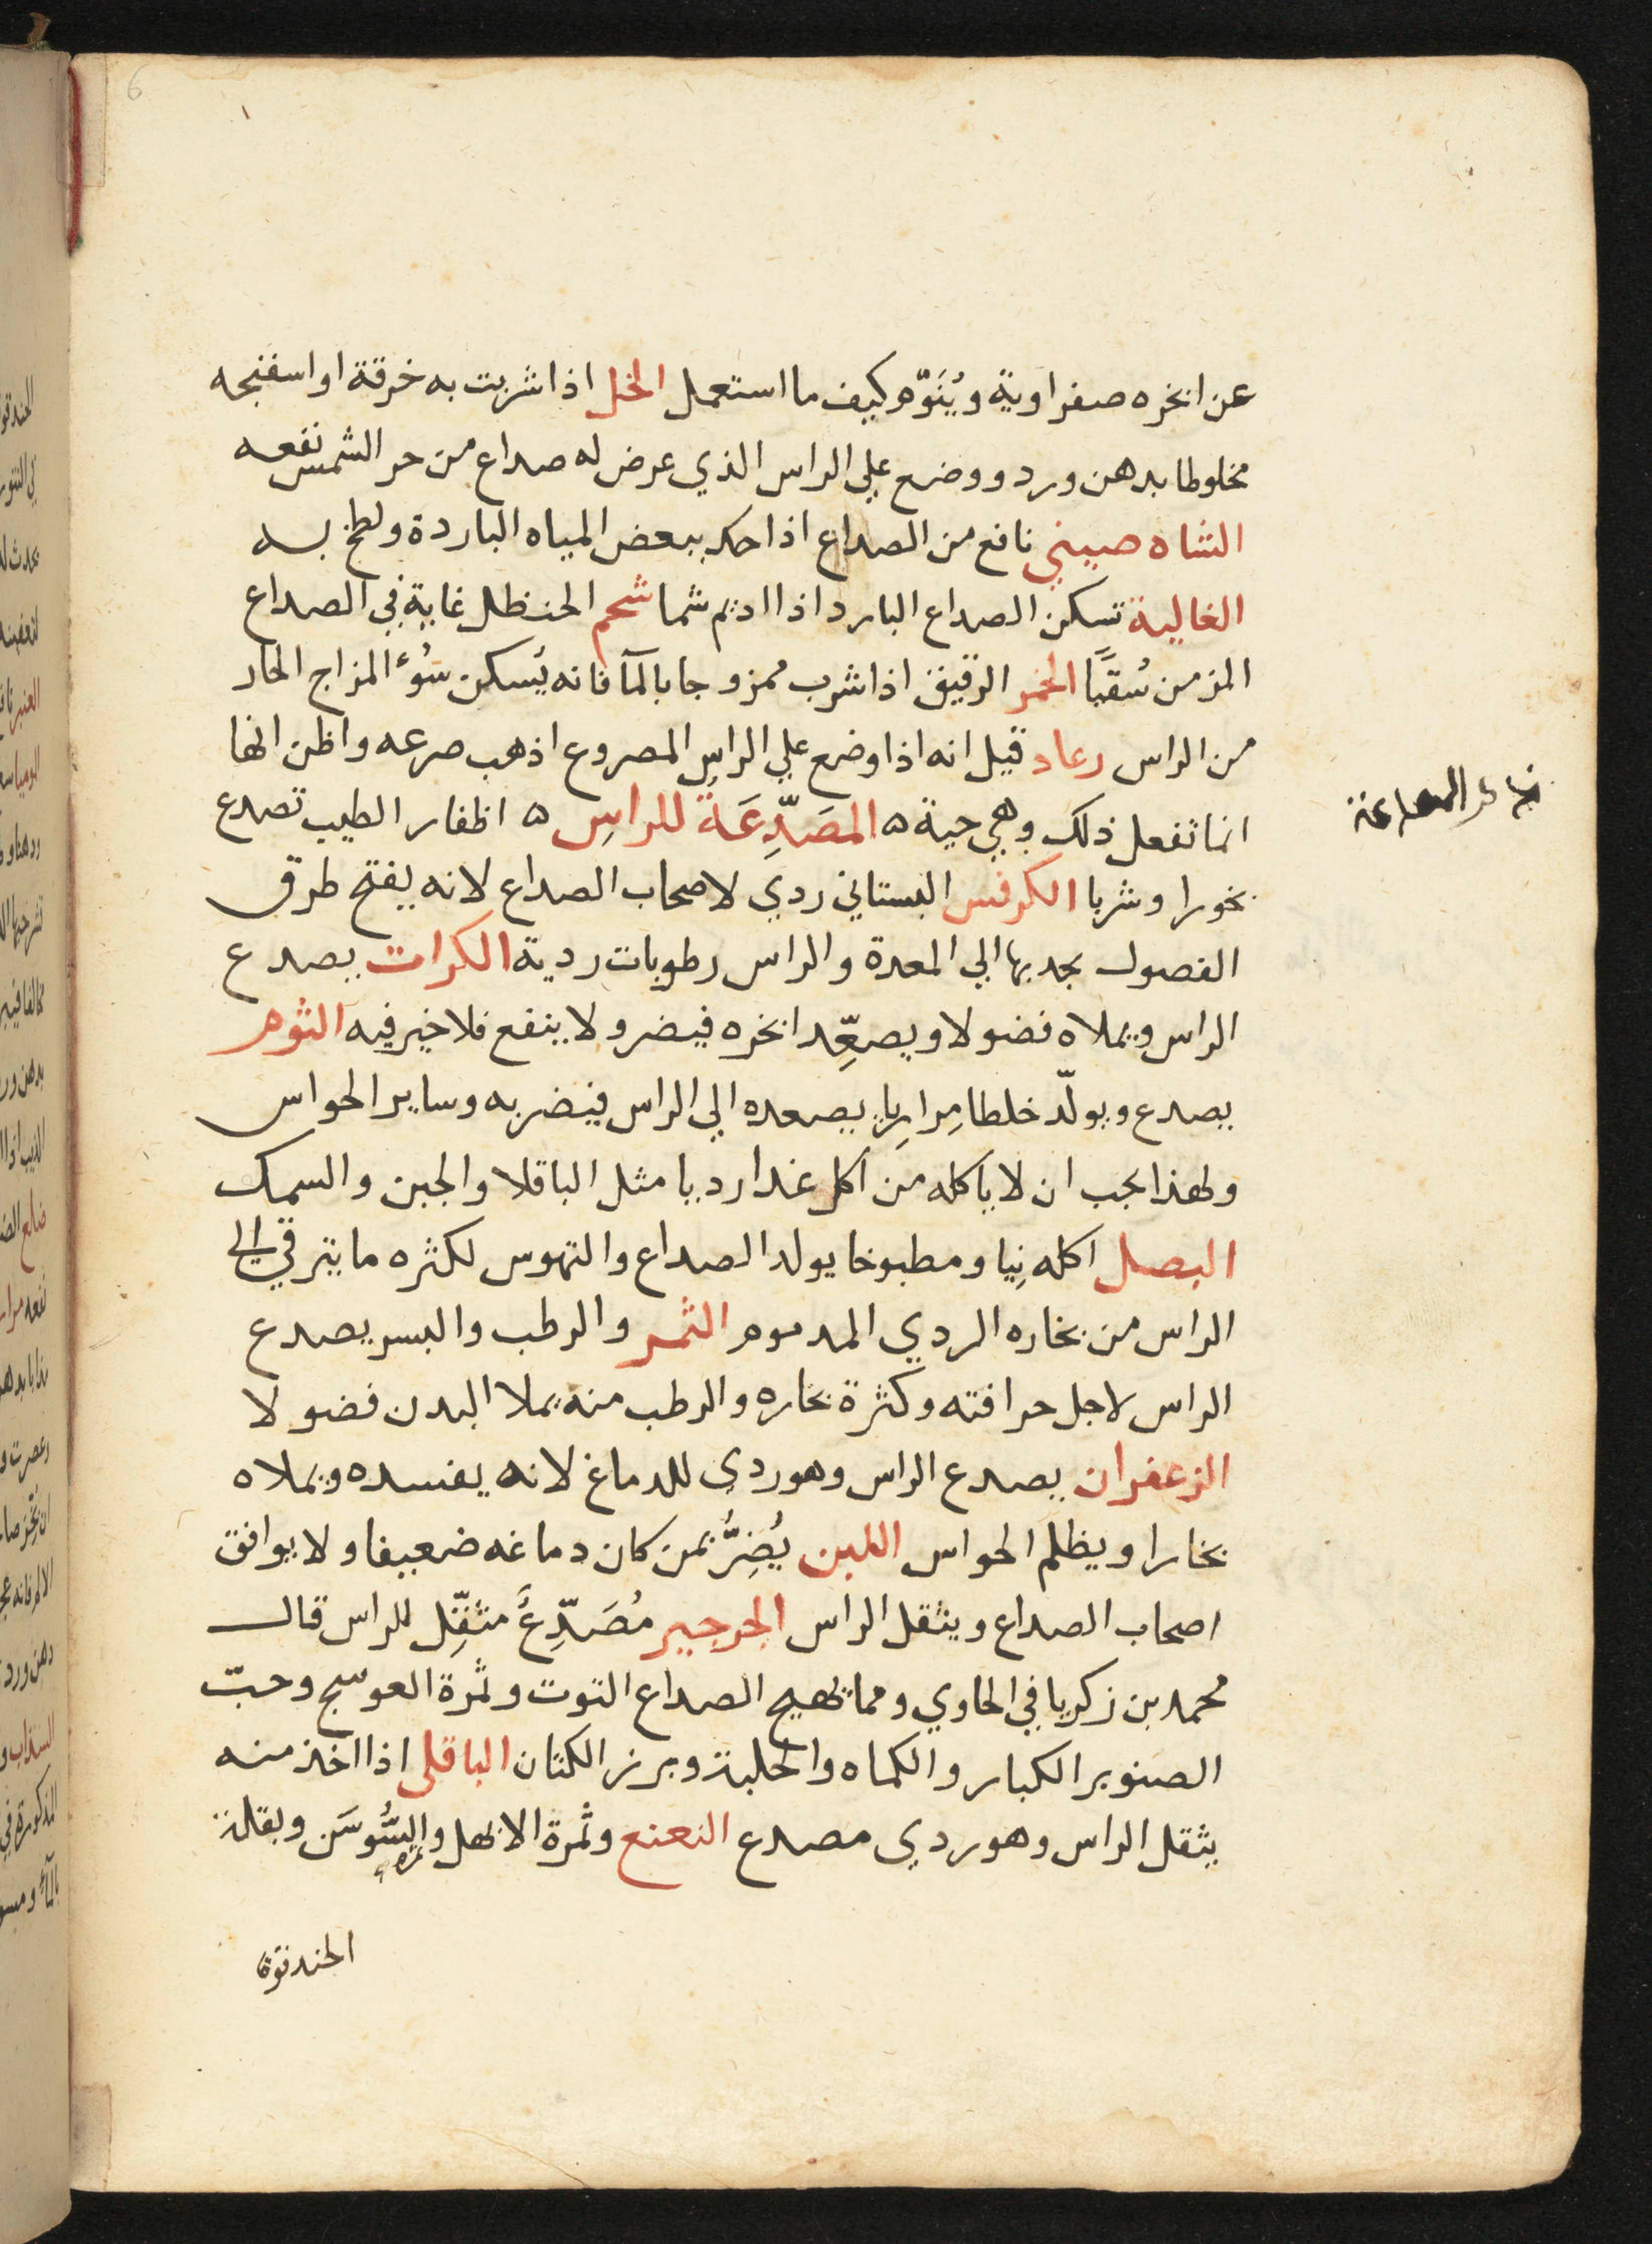 عن ابخره صفراوية ويُنَوّم كيف ما استعمل الخل اذا شربت به خرقة او اسفنجه
مخلوطا بدهن ورد ووضع علي الراس الذي عرض له صداع من حر الشمس نفعه
الشاه صيني نافع من الصداع اذا حك ببعض المياه الباردة ولطخ به
الغالية تسكن الصداع البارد اذا اديم شما شحم الحنظل غاية في الصداع
المزمن سُقيًا الخمر الرقيق اذا شرب ممزوجا بالمآ فانه يُسكن سُوء المزاج الحار
من الراس رعاد قيل انه اذا وضع علي الراس المصروع اذهب صرعه واظن انها
انما تفعل ذلك وهي حية ه المصَدِّعَة للراسِ ه اظفار الطيب تصدع
بخورا وشربا الكرفس البستاني ردي لاصحاب الصداع لانه يفتح طرق
الفصول بجدبها الي المعدة والراس رطوبات ردية الكرات يصدع
الراس ويملاه فضولا ويصعِّد ابخره فيضر ولا ينفع فلا خير فيه الثوم
يصدع ويولّد خلطا مِرارِيا يصعده الي الراس فيضر به وساير الحواس
ولهذا يجب ان لا ياكله من اكل غدا رديا مثل الباقلا والجبن والسمك
البصل اكله نِيا ومطبوخا يولد الصداع والتهوس لكثره ما يترقي الى
الراس من بخاره الردي المدموم الثمر والرطب والبسر يصدع
الراس لاجل حرافته وكثرة بخاره والرطب منه يملا البدن فضولا
الزعفران يصدع الراس وهو ردي للدماغ لانه يفسده ويملاه
بخارا ويظلم الحواس اللبن يُضِرُّ بمن كان دماغه ضعيفا ولا يوافق
اصحاب الصداع ويثقل الراس الجرجير مُصَدِّعٌ مثقِّل للراس قال
محمد بن زكريا في الحاوي ومما يهيج الصداع التوت وثمرة العوسج وحبّ
الصنوبر الكبار والكماه والحلبة وبرز الكتان الباقلى اذا اخذ منه
يثقل الراس وهو ردي مصدع النعنع وثمرة الابهل والسُّوسَن وبقلة
الحندقوقا